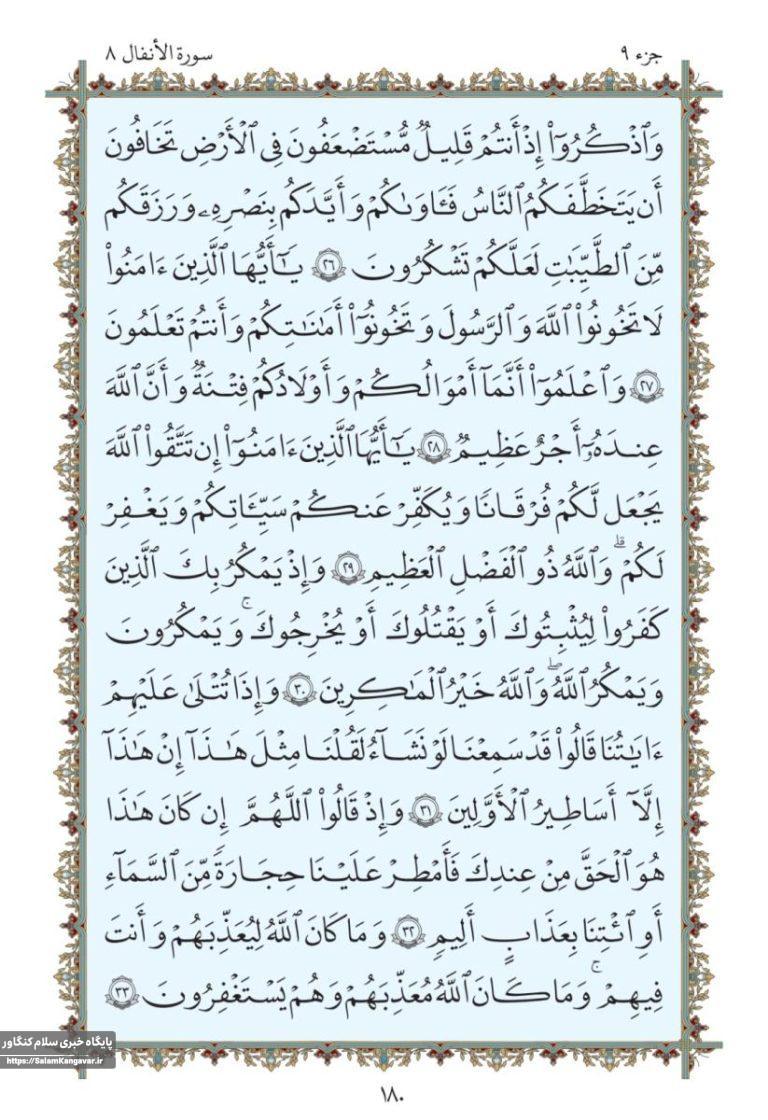 جزء ۹
سورة الأنفال ۸
وَٱذۡكُرُوٓاْ إِذۡ أَنتُمۡ قَلِيلٞ مُّسۡتَضۡعَفُونَ فِي ٱلۡأَرۡضِ تَخَافُونَ
أَن يَتَخَطَّفَكُمُ ٱلنَّاسُ فَـَٔاوَىٰكُمۡ وَأَيَّدَكُم بِنَصۡرِهِۦ وَرَزَقَكُم
مِّنَ ٱلطَّيِّبَٰتِ لَعَلَّكُمۡ تَشۡكُرُونَ ۲۶ يَٰٓأَيُّهَا ٱلَّذِينَ ءَامَنُواْ
لَا تَخُونُواْ ٱللَّهَ وَٱلرَّسُولَ وَتَخُونُوٓاْ أَمَٰنَٰتِكُمۡ وَأَنتُمۡ تَعۡلَمُونَ
۲۷ وَٱعۡلَمُوٓاْ أَنَّمَآ أَمۡوَٰلُكُمۡ وَأَوۡلَٰدُكُمۡ فِتۡنَةٞ وَأَنَّ ٱللَّهَ
عِندَهُۥٓ أَجۡرٌ عَظِيمٞ ۲۸ يَٰٓأَيُّهَا ٱلَّذِينَ ءَامَنُوٓاْ إِن تَتَّقُواْ ٱللَّهَ
يَجۡعَل لَّكُمۡ فُرۡقَانٗا وَيُكَفِّرۡ عَنكُمۡ سَيِّـَٔاتِكُمۡ وَيَغۡفِرۡ
لَكُمۡۗ وَٱللَّهُ ذُو ٱلۡفَضۡلِ ٱلۡعَظِيمِ ۲۹ وَإِذۡ يَمۡكُرُ بِكَ ٱلَّذِينَ
كَفَرُواْ لِيُثۡبِتُوكَ أَوۡ يَقۡتُلُوكَ أَوۡ يُخۡرِجُوكَۚ وَيَمۡكُرُونَ
وَيَمۡكُرُ ٱللَّهُۖ وَٱللَّهُ خَيۡرُ ٱلۡمَٰكِرِينَ ۳۰ وَإِذَا تُتۡلَىٰ عَلَيۡهِمۡ
ءَايَٰتُنَا قَالُواْ قَدۡ سَمِعۡنَا لَوۡ نَشَآءُ لَقُلۡنَا مِثۡلَ هَٰذَآ إِنۡ هَٰذَآ
إِلَّآ أَسَٰطِيرُ ٱلۡأَوَّلِينَ ۳۱ وَإِذۡ قَالُواْ ٱللَّهُمَّ إِن كَانَ هَٰذَا
هُوَ ٱلۡحَقَّ مِنۡ عِندِكَ فَأَمۡطِرۡ عَلَيۡنَا حِجَارَةٗ مِّنَ ٱلسَّمَآءِ
أَوِ ٱئۡتِنَا بِعَذَابٍ أَلِيمٖ ۳۲ وَمَا كَانَ ٱللَّهُ لِيُعَذِّبَهُمۡ وَأَنتَ
فِيهِمۡۚ وَمَا كَانَ ٱللَّهُ مُعَذِّبَهُمۡ وَهُمۡ يَسۡتَغۡفِرُونَ ۳۳
پایگاه خبری سلام کنگاور
https://SalamKangavar.ir
۱۸۰